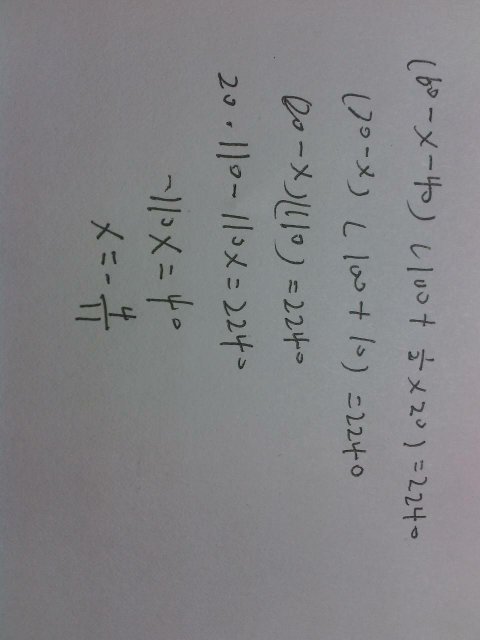 (60-x-40)(100+½×20)=2240
(20-x)(100+10)=2240
(20-x)(110)=2240
20·110-110x=2240
-110x=40
x=-4/11